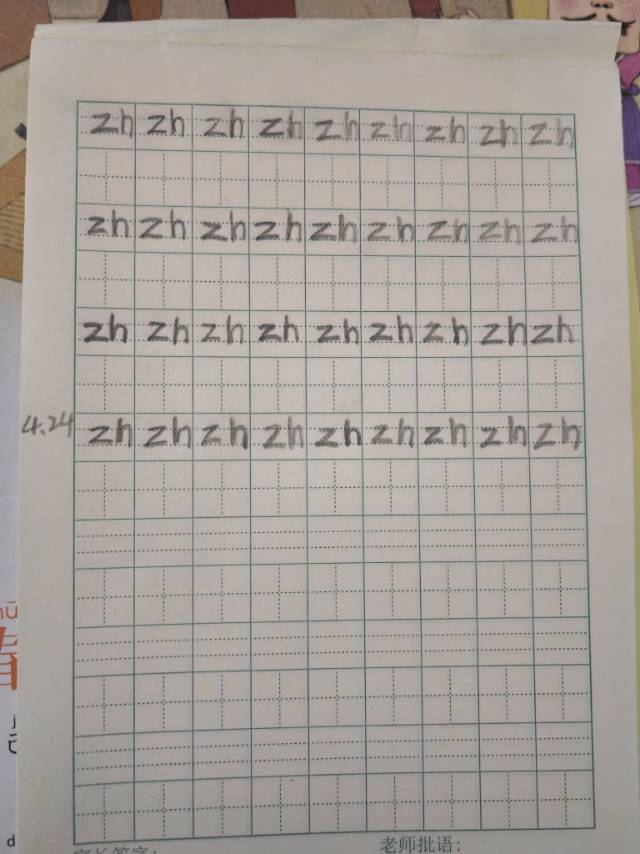 zh zh zh zh zh zh zh zh zh
zh zh zh zh zh zh zh zh zh
zh zh zh zh zh zh zh zh zh
4.24 zh zh zh zh zh zh zh zh zh
老师批语: